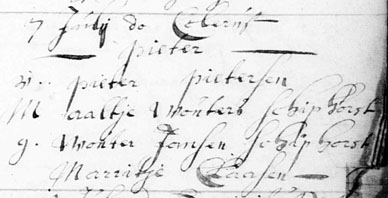 7 Julij do Coberist
Pieter
V. pieter pietersen
M aaltje Wouters Schiphorst
g. Wouter Jansen Schiphorst
Marritje Claasen